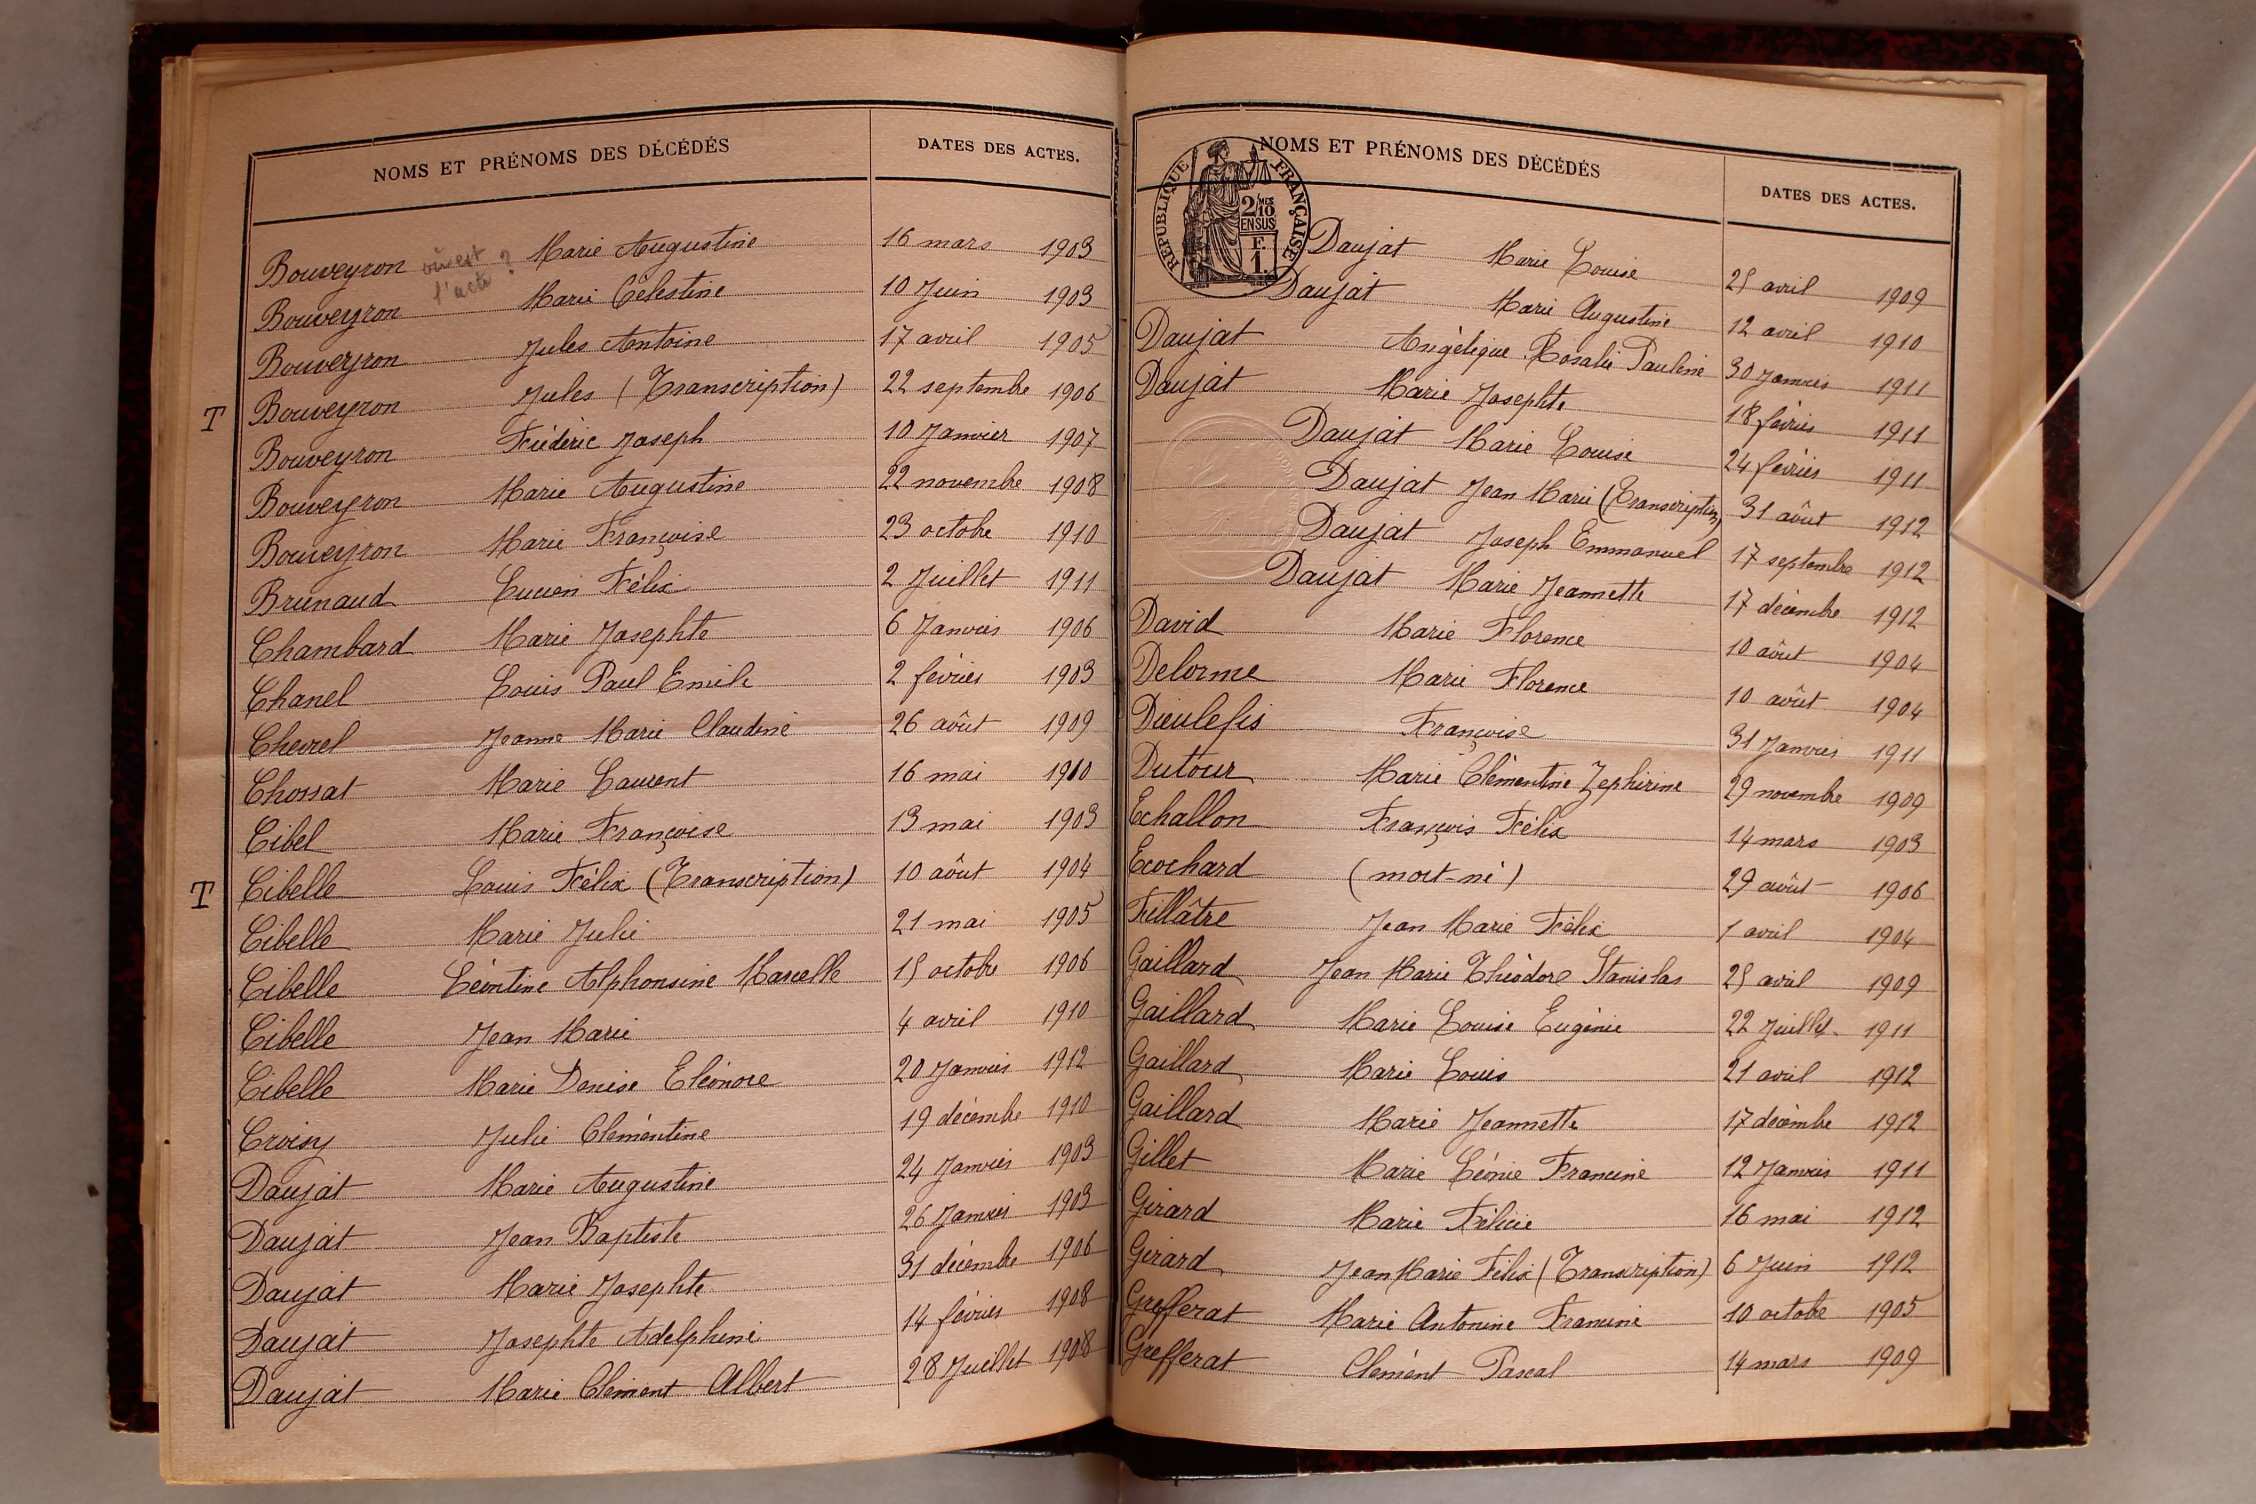 NOMS ET PRÉNOMS DES DÉCÉDÉS DATES DES ACTES.
Bouveyron où est l'acte ? Marie Augustine 16 mars 1903
Bouveyron Marie Célestine 10 Juin 1903
Bouveyron Jules Antoine 17 avril 1905
T Bouveyron Jules (Transcription) 22 septembre 1906
Bouveyron Frédéric Joseph 10 Janvier 1907
Bouveyron Marie Augustine 22 novembre 1908
Bouveyron Marie Françoise 23 octobre 1910
Brunaud Lucien Félix 2 Juillet 1911
Chambard Marie Josephte 6 Janvier 1906
Chanel Louis Paul Emile 2 février 1903
Chevrel Jeanne Marie Claudine 26 août 1909
Chossat Marie Laurent 16 mai 1910
Cibel Marie Françoise 13 mai 1903
T Cibelle Louis Félix (Transcription) 10 août 1904
Cibelle Marie Julie 21 mai 1905
Cibelle Léontine Alphonsine Marcelle 15 octobre 1906
Cibelle Jean Marie 4 avril 1910
Cibelle Marie Denise Eléonore 20 Janvier 1912
Croisy Julie Clémentine 19 décembre 1910
Daujat Marie Augustine 24 Janvier 1903
Daujat Jean Baptiste 26 Janvier 1903
Daujat Marie Josephte 31 décembre 1906
Daujat Josephte Adelphine 14 février 1908
Daujat Marie Clément Albert 28 Juillet 1908
NOMS ET PRÉNOMS DES DÉCÉDÉS DATES DES ACTES.
RÉPUBLIQUE FRANÇAISE
2/10 MES
EN SUS
F.
1.
Daujat Marie Louise 25 avril 1909
Daujat Marie Augustine 12 avril 1910
Daujat Angélique Rosalie Pauline 30 Janvier 1911
Daujat Marie Josephte 18 février 1911
Daujat Marie Louise 24 février 1911
Daujat Jean Marie (Transcription) 31 août 1912
Daujat Joseph Emmanuel 17 septembre 1912
Daujat Marie Jeannette 17 décembre 1912
David Marie Florence 10 août 1904
Delorme Marie Florence 10 août 1904
Dieulefis Françoise 31 Janvier 1911
Dutour Marie Clémentine Zephirine 29 novembre 1909
Echallon François Félix 14 mars 1903
Ecochard (mort-né) 29 août 1906
Fillâtre Jean Marie Félix 1 avril 1904
Gaillard Jean Marie Théodore Stanislas 25 avril 1909
Gaillard Marie Louise Eugénie 22 Juillet 1911
Gaillard Marie Louis 21 avril 1912
Gaillard Marie Jeannette 17 décembre 1912
Gillet Marie Léonie Francine 12 Janvier 1911
Girard Marie Félicie 16 mai 1912
Girard Jean Marie Félix (Transcription) 6 Juin 1912
Grefferat Marie Antonine Francine 10 octobre 1905
Grefferat Clément Pascal 14 mars 1909